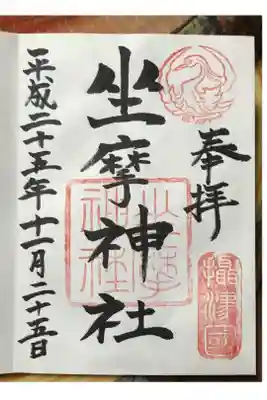 奉拝
攝津国
坐摩神社
坐摩神社
平成二十五年十一月二十五日